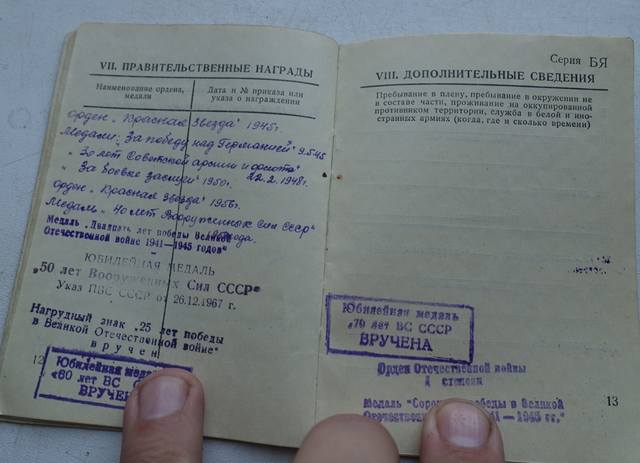 VII. ПРАВИТЕЛЬСТВЕННЫЕ НАГРАДЫ
Наименование ордена, медали
Дата и № приказа или указа о награждении
Орден „Красная Звезда" 1945г.
Медали: „За победу над Германией" 9.5.45
„ 30 лет Советской армии и флота"
22.2.1948г.
„ За боевые заслуги" 1950г.
Орден „Красная Звезда" 1956г.
Медаль „40 лет Вооруженных Сил СССР"
Медаль „Двадцать лет победы в Великой
Отечественной войне 1941—1945 годов"
ЮБИЛЕЙНАЯ МЕДАЛЬ
„50 лет Вооруженных Сил СССР"
Указ ПВС СССР от 26.12.1967 г.
Нагрудный знак „25 лет победы
в Великой Отечественной войне"
вручен
12
Юбилейная медаль
«60 лет ВС
Серия БЯ
VIII. ДОПОЛНИТЕЛЬНЫЕ СВЕДЕНИЯ
Пребывание в плену, пребывание в окружении не
в составе части, проживание на оккупированной
противником территории, служба в белой и ино-
странных армиях (когда, где и сколько времени)
Юбилейная медаль
„70 лет ВС СССР
ВРУЧЕНА
Орден Отечественной войны
степени
Медаль "Сорок победы в Великой
—1945 гг."
13